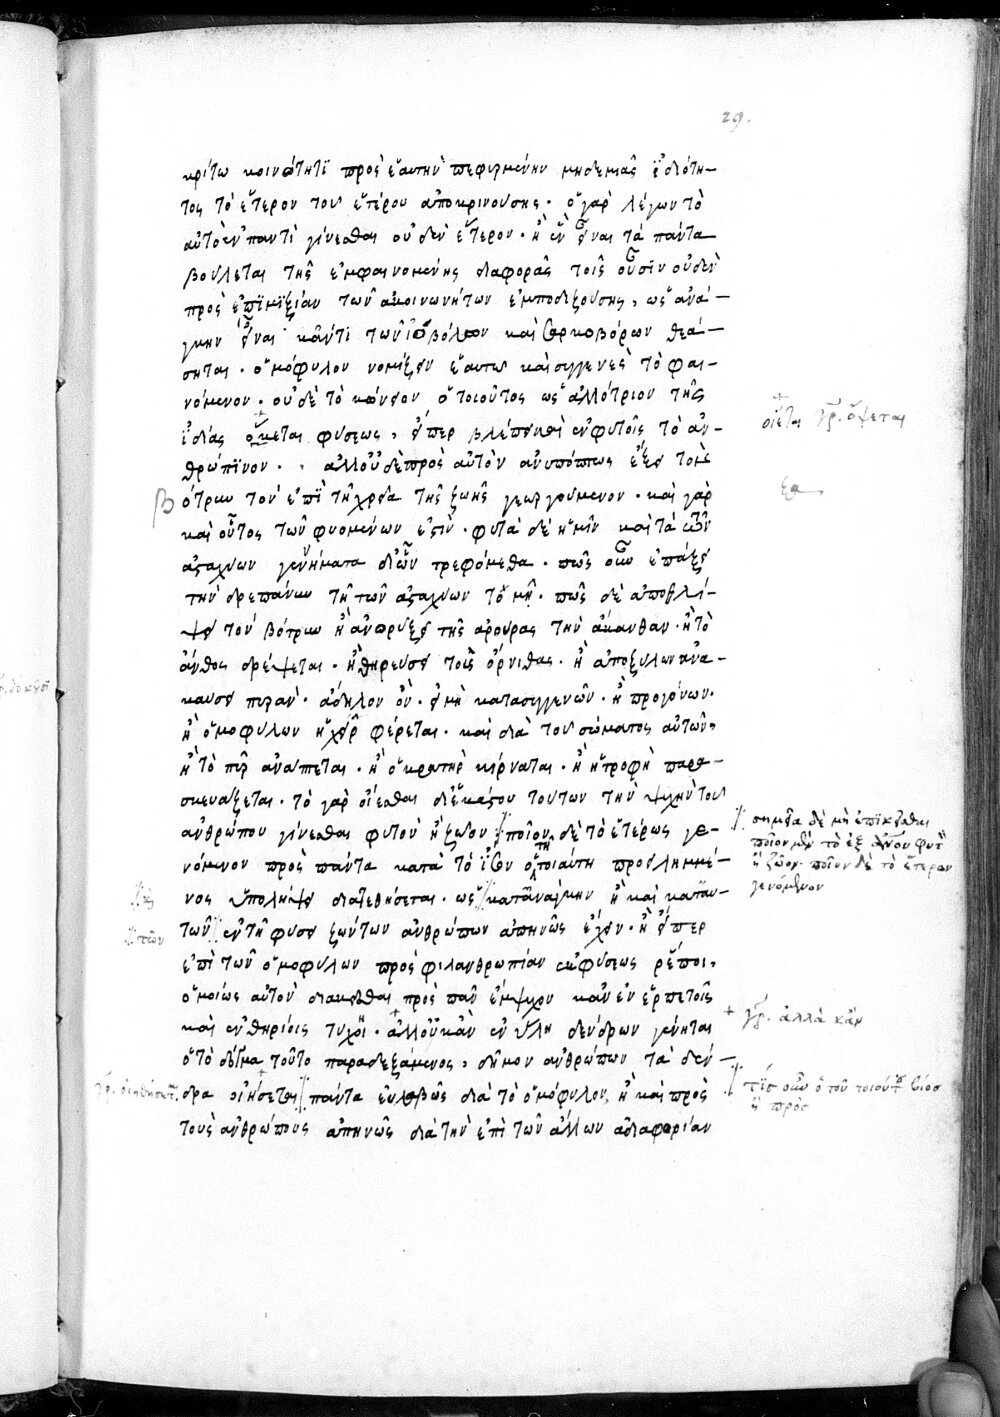 29.
κρίτω κοινότητι πρὸς ἑαυτὴν πεφυρμένην μηδεμιᾶς ἰδιότη-
τος τὸ ἕτερον τοῦ ἑτέρου ἀποκρινούσης· ὁ γὰρ λέγων τὸ
αὐτὸ ἐν παντὶ γίνεσθαι οὐδὲν ἕτερον· ἢ ἓν εἶναι τὰ πάντα
βούλεται τῆς ἐμφαινομένης διαφορᾶς τοῖς οὖσιν οὐδὲν
πρὸς ἐπιμιξίαν τῶν ἀκοινωνήτων ἐμποδιζούσης, ὡς ἀνά-
γκην εἶναι κἄν τι τῶν ἰοβόλων καὶ σαρκοβόρων θεά-
σηται· ὁμόφυλον νομίζειν ἑαυτῷ καὶ συγγενὲς τὸ φαι-
νόμενον· οὐδὲ τὸ κώνειον ὁ τοιοῦτος ὡς ἀλλότριον τῆς
ἰδίας οἴεται φύσεως, εἴπερ βλέπει καὶ ἐν φυτοῖς τὸ ἀν-
θρώπινον· ἀλλ' οὐδὲ πρὸς αὐτὸν ἀνυπόπτως ἕξει τὸν
βότρυν τὸν ἐπὶ τῇ χρείᾳ τῆς ζωῆς γεωργούμενον· καὶ γὰρ
καὶ οὗτος τῶν φυομένων ἐστίν· φυτὰ δὲ ἡμῖν καὶ τὰ τῶν
ἀσταχύων γεννήματα δι' ὧν τρεφόμεθα· πῶς οὖν ἐπάξει
τὴν δρεπάνην τῇ τῶν ἀσταχύων τομῇ· πῶς δὲ ἀποθλί-
ψει τὸν βότρυν ἢ ἀνορύξει τῆς ἀρούρας τὴν ἄκανθαν· ἢ τὸ
ἄνθος δρέψεται· ἢ θηρεύσει τοὺς ὄρνιθας· ἢ ἀπὸ ξύλων ἀνα-
καύσει πυράν· ἄδηλον ὂν· εἰ μὴ κατὰ συγγενῶν· ἢ προγόνων·
ἢ ὁμοφύλων ἡ χεὶρ φέρεται· καὶ διὰ τοῦ σώματος αὐτῶν,
ἢ τὸ πῦρ ἀνάπτεται· ἢ ὁ κρατὴρ κίρναται· ἢ ἡ τροφὴ παρα-
σκευάζεται· τὸ γὰρ οἴεσθαι δι' ἑκάστου τούτων τὴν ψυχὴν τοῦ
ἀνθρώπου γίνεσθαι φυτὸν ἢ ζῷον ποῖον δὲ τὸ ἑτέρως γε-
νόμενον πρὸς πάντα κατὰ τὸ ἴσον ὁ τῇ τοιαύτῃ προειλημμέ-
νος ὑπολήψει διατεθήσεται· ὡς κατ' ἀνάγκην ἢ καὶ κατ' αὐ-
τῶν ἐν τῇ φύσει ζώντων ἀνθρώπων ἀπηνῶς ἔχειν· ἢ εἴπερ
ἐπὶ τῶν ὁμοφύλων πρὸς φιλανθρωπίαν ἐκ φύσεως ῥέποι,
ὁμοίως αὐτὸν διακεῖσθαι πρὸς πᾶν ἔμψυχον κἂν ἐν ἑρπετοῖς
καὶ ἐν θηρίοις τύχοι· ἀλλ' οὐκ ἂν ἐν ὕλῃ δένδρων γένηται
ὁ τὸ δόγμα τοῦτο παραδεξάμενος, δῆμον ἀνθρώπων τὰ δέν-
δρα οἰήσεται πάντα εὐλαβὼς διὰ τὸ ὁμόφυλον, ἢ καὶ πρὸς
τοὺς ἀνθρώπους ἀπηνῶς διὰ τὴν ἐπὶ τῶν ἄλλων ἀδιαφορίαν
οἴεται γρ. ὄψεται
σημεῖα δὲ μὴ ἐπικεῖσθαι
ποῖον μὲν τὸ ἐξ ἀνου φυτὸν
ἢ ζῶον· ποῖον δὲ τὸ ἕτερον
γενόμενον
τῶν
γρ. ἀλλὰ κἂν
τίς οὖν ὁ τοῦ τοιούτου βίος
ἢ πρὸς
γρ. οἰηθήσεται